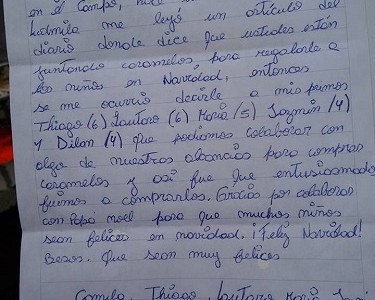 en el Campo,
Ludmila me leyó un artículo del
diario donde dice que ustedes están
juntando caramelos para regalarle a
los niños en Navidad, entonces
se me ocurrió decirle a mis primos
Thiago (6) Lautaro (6) María (5) Jazmín (4)
y Dilan (4) que podíamos colaborar con
algo de nuestras alcancías para comprar
caramelos y así fue que entusiasmados
fuimos a comprarlos. Gracias por colaborar
con Papá Noel para que muchos niños
sean felices en navidad. ¡Feliz Navidad!
Besos. Que sean muy felices
Camila, Thiago, Lautaro